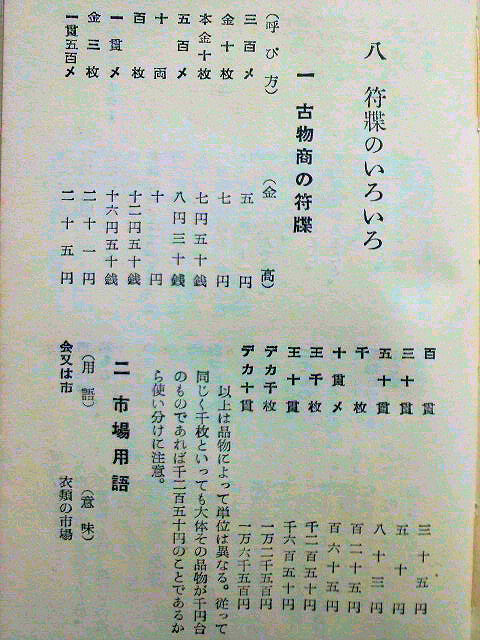 八 符牒のいろいろ
一 古物商の符牒
(呼び方) (金高)
三百メ 五円
金十枚 七円
本金十枚 七円五十銭
五百メ 八円三十銭
十両 十円
百枚 十二円五十銭
一貫メ 十六円五十銭
金三枚 二十一円
一貫五百メ 二十五円
百貫 三十五円
三十貫 五十円
五十貫 八十三円
千枚 百二十五円
十貫メ 百六十五円
王千枚 千二百五十円
王十貫 千六百五十円
デカ千枚 一万二千五百円
デカ十貫 一万六千五百円
以上は品物によって単位は異なる。従って
同じく千枚といっても大体その品物が千円台
のものであれば千二百五十円のことであるか
ら使い分けに注意。
二 市場用語
(用語) (意味)
会又は市 衣類の市場